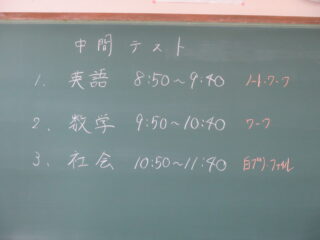 中間テスト
1. 英語 8:50〜9:40 ノート・ワーク
2. 数学 9:50〜10:40 ワーク
3. 社会 10:50〜11:40 白プリ・ファイル